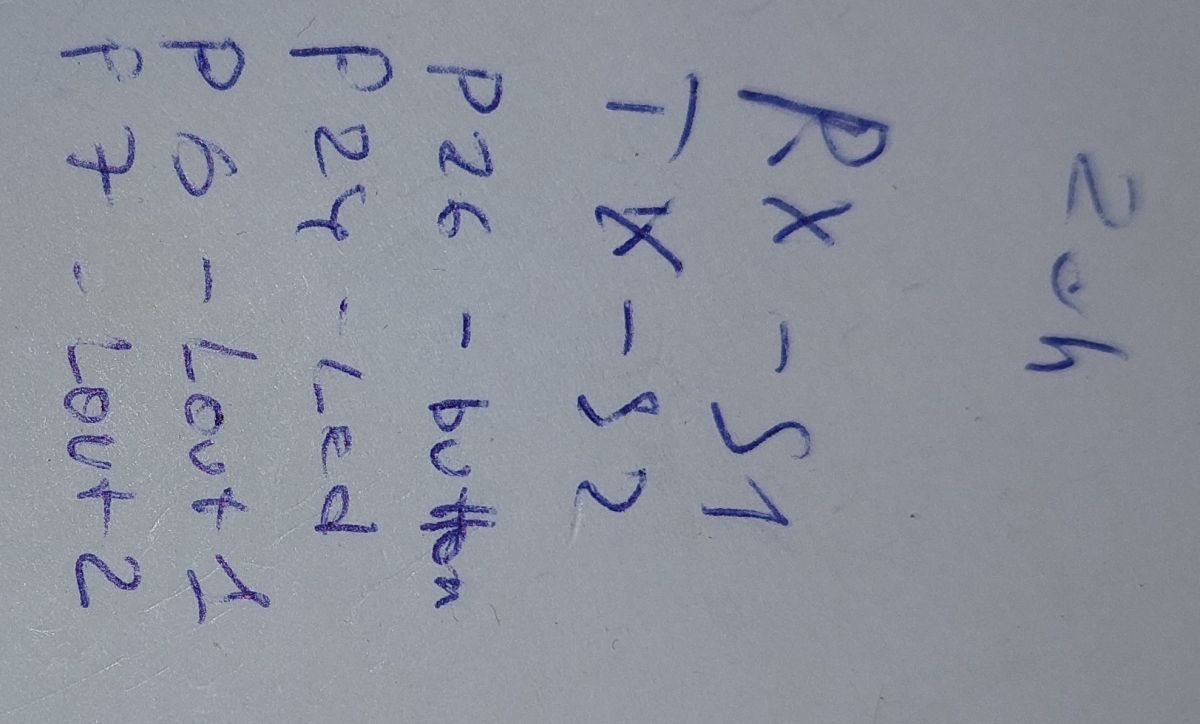 2ch
Rx - S1
Tx - S2
P26 - button
P24 - Led
P6 - Lout 1
P7 - Lout 2